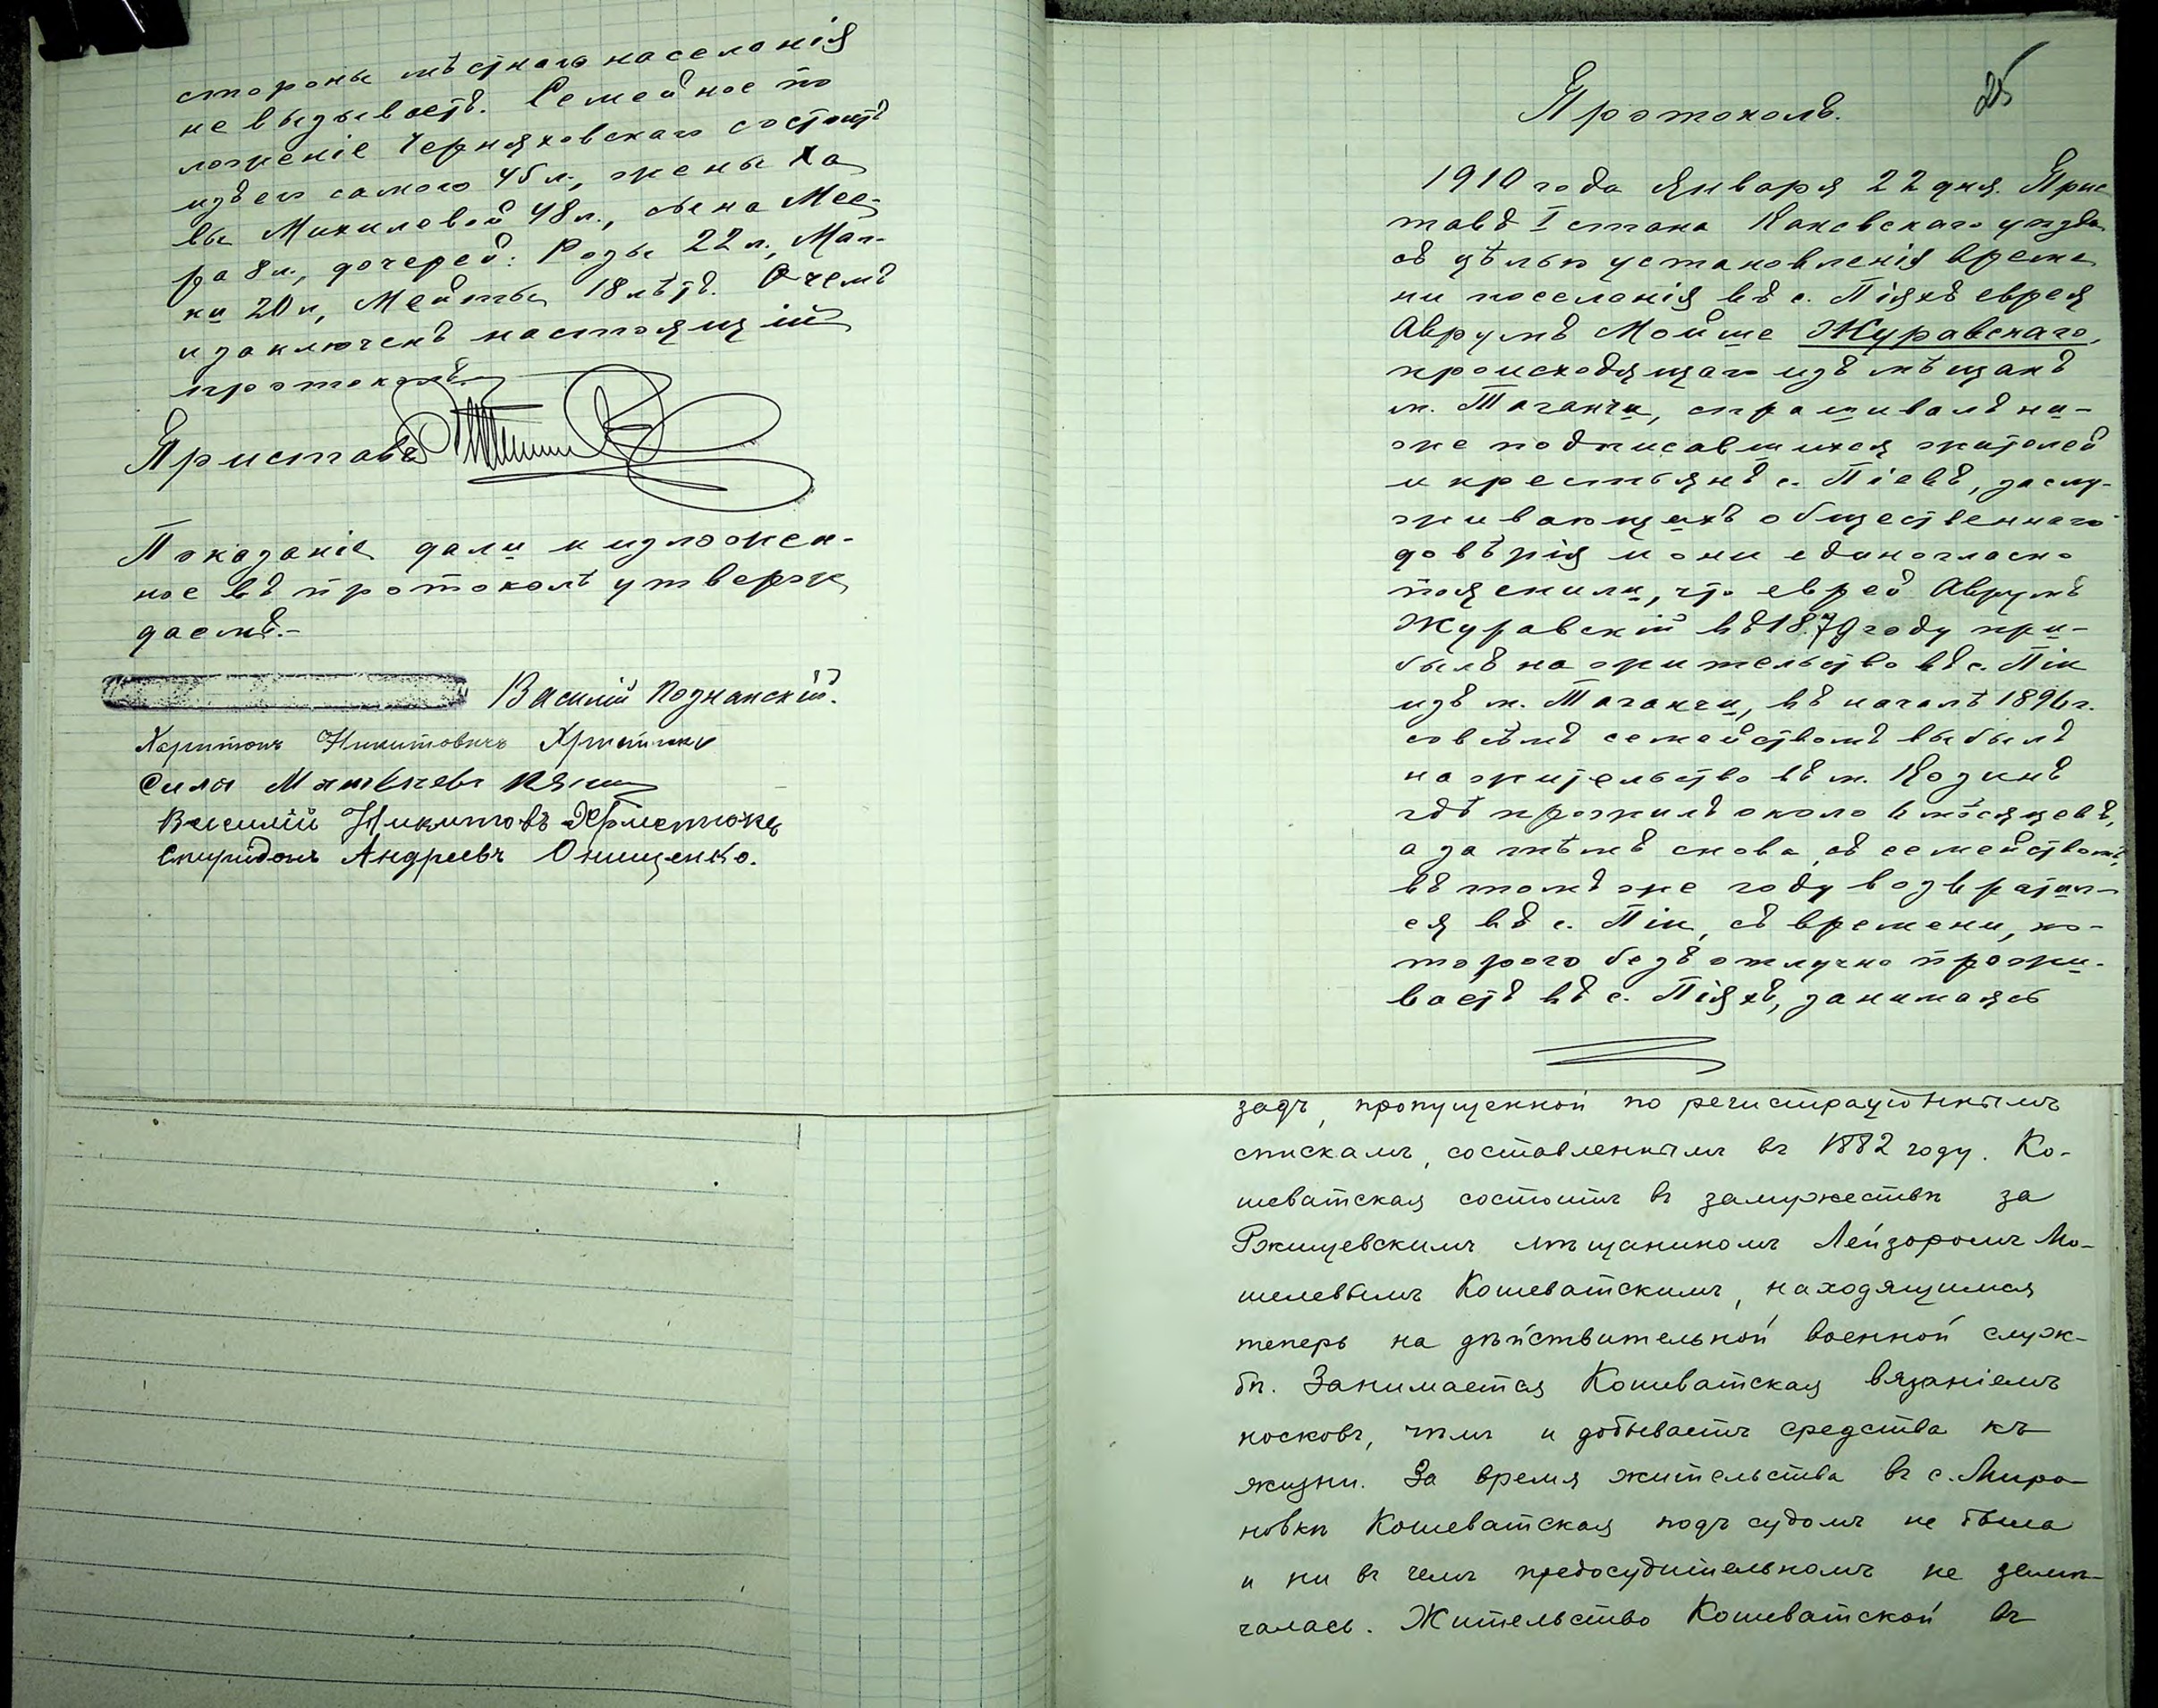 стороны мѣстнаго населенія
не вызываетъ. Семейное по
ложеніе Черняховскаго состоитъ
изъ его самого 45 л., жены Ха
вы Михилевой 48 л., сына Мее-
ра 8 л., дочерей: Розы 22 л., Мал-
ки 20 л, Мейты 18 лѣтъ. О чемъ
и заключенъ настоящій
протоколъ
Приставъ
Показаніе дали и изложен-
ное въ протоколѣ утверж
даемъ.-
Василій Познанскій.
Харитонъ Никитовичъ
Сила
Василій Никитовъ
Спиридонъ Андреевъ Онищенко.
25
Протоколъ.
1910 года Января 22 дня. Прис
тавъ I стана Каневскаго уѣзда
съ цѣлью установленія време
ни поселенія въ с. Піяхъ еврея
Аврумъ Мойше Журавскаго,
происходящаго изъ мѣщанъ
м. Таганчи, спрашивалъ ни-
же подписавшихся жителей
и крестьянъ с. Піевъ, заслу-
живающихъ общественнаго
довѣрія и они единогласно
пояснили, что еврей Аврумъ
Журавскій въ 1879 году при-
былъ на жительство въ с. Піи
изъ м. Таганчи, въ началѣ 1896 г.
совсѣмъ семействомъ выбылъ
на жительство въ м. Козинъ
гдѣ прожилъ около 6 мѣсяцевъ,
а за тѣмъ снова, съ семействомъ,
въ томъ же году возвратил-
ся въ с. Піи, съ времени, ко-
торого безъ отлучно прожи-
ваетъ въ с. Піяхъ, занимаясь
задъ, пропущенной по регистраціоннымъ
спискамъ, составленнымъ въ 1882 году. Ко-
шеватская состоитъ въ замужествѣ за
Ржищевскимъ мѣщаниномъ Лейзоромъ Мо-
шелевымъ Кошеватскимъ, находящимся
теперь на дѣйствительной военной служ-
бѣ. Занимается Кошеватская вязаніемъ
носковъ, чѣмъ и добываетъ средства къ
жизни. За время жительства въ с. Миро-
новкѣ Кошеватская подъ судомъ не была
и ни въ чемъ предосудительномъ не замѣ-
чалась. Жительство Кошеватской въ